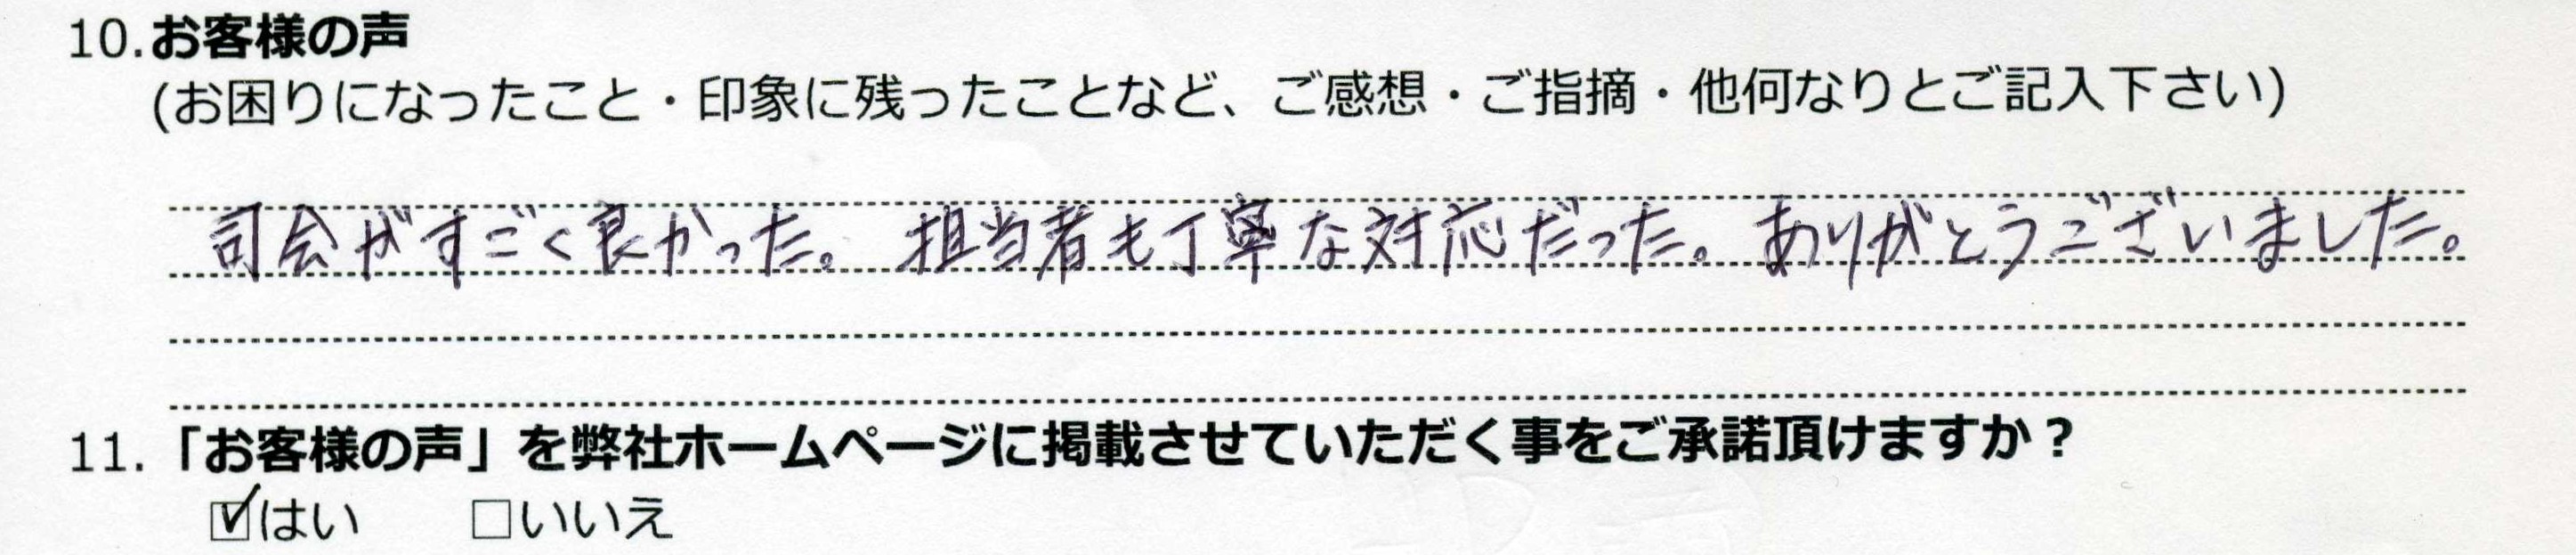 10.お客様の声
(お困りになったこと・印象に残ったことなど、ご感想・ご指摘・他何なりとご記入下さい)
司会がすごく良かった。担当者も丁寧な対応だった。ありがとうございました。
11.「お客様の声」を弊社ホームページに掲載させていただく事をご承諾頂けますか？
☑はい　□いいえ